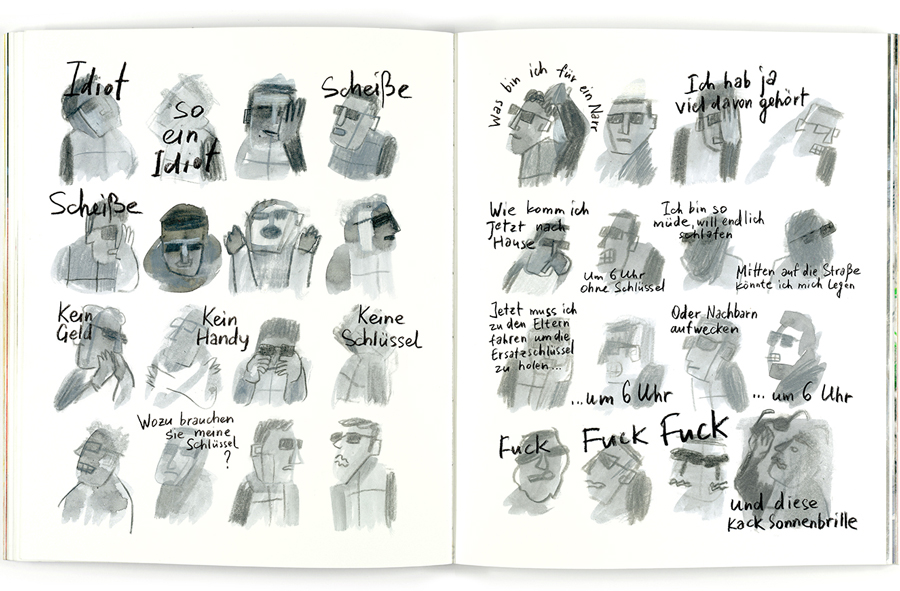 Idiot
so
ein
Idiot
Scheiße
Scheiße
Kein
Geld
Kein
Handy
Keine
Schlüssel
Wozu brauchen
sie meine
Schlüssel
?
Was bin ich für ein Narr
Ich hab ja
viel davon gehört
Wie komm ich
jetzt nach
Hause
um 6 Uhr
ohne Schlüssel
Ich bin so
müde, will endlich
schlafen
Mitten auf die Straße
könnte ich mich legen
Jetzt muss ich
zu den Eltern
fahren um die
Ersatzschlüssel
zu holen...
...um 6 Uhr
Oder Nachbarn
aufwecken
... um 6 Uhr
Fuck
Fuck Fuck
und diese
Kack Sonnenbrille